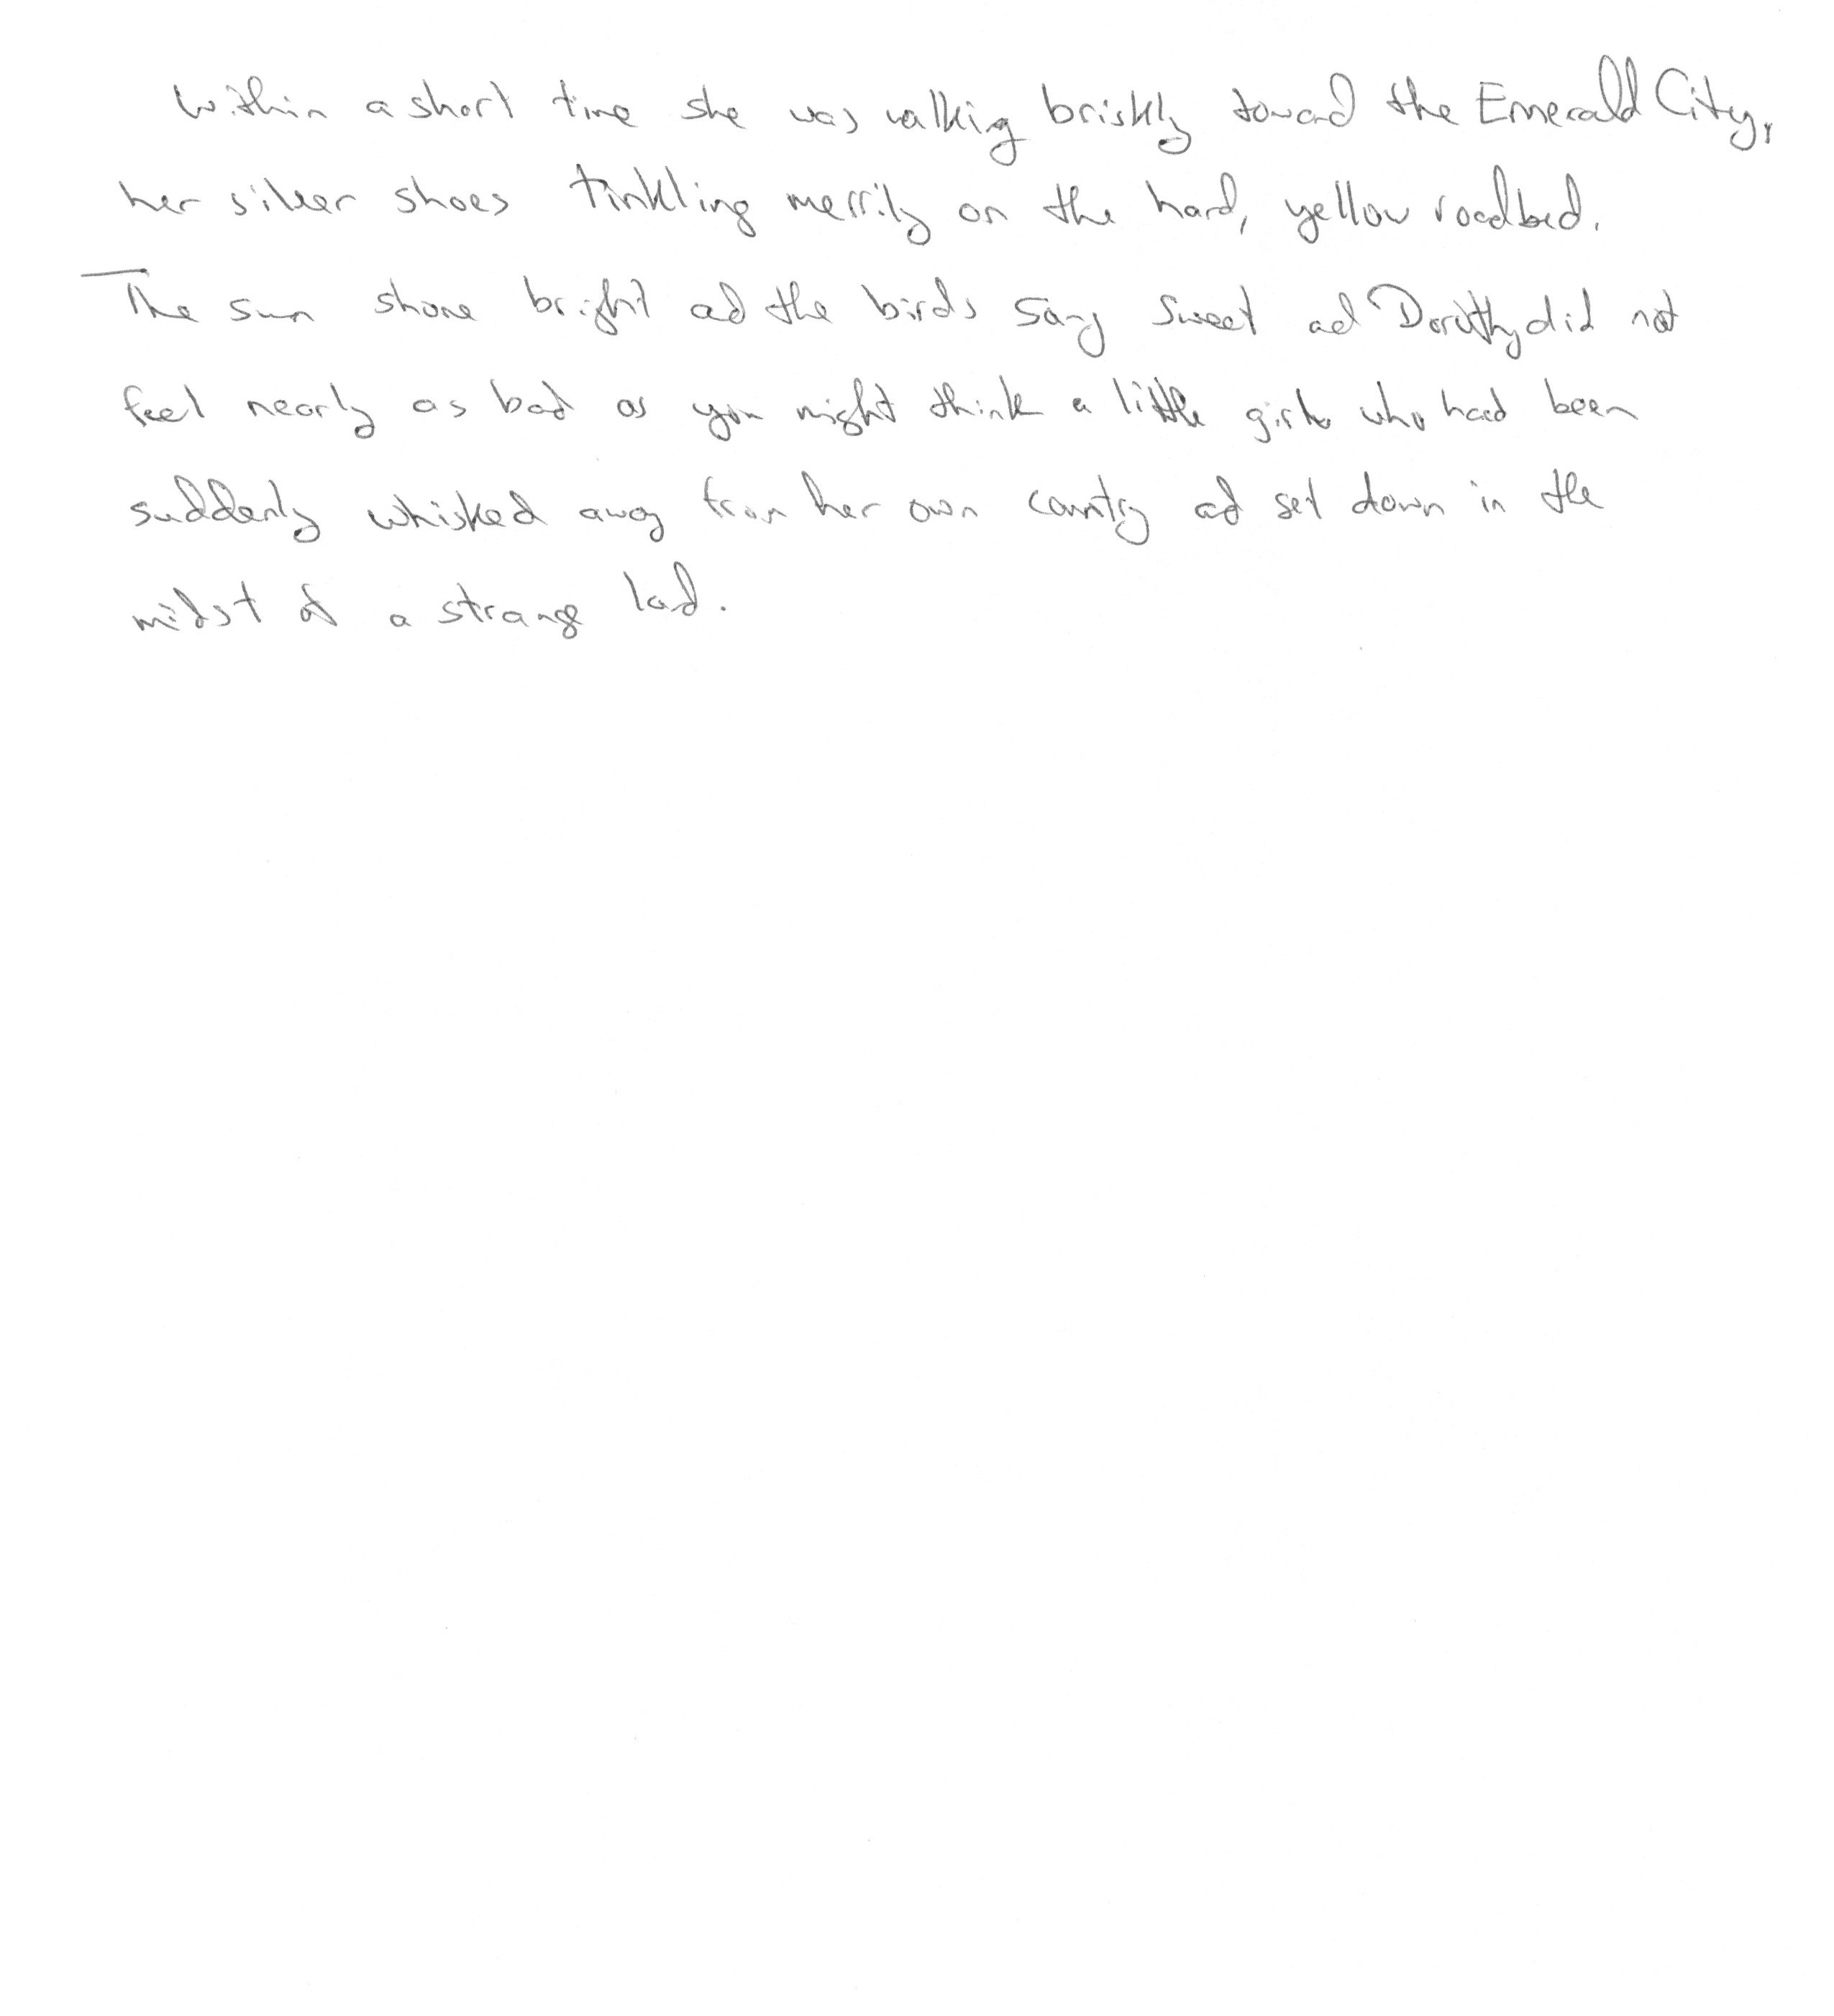 Within a short time she was walking briskly toward the Emerald City,
her silver shoes tinkling merrily on the hard, yellow roadbed.
The sun shone bright ad the birds sang sweet ad Dorothy did not
feel nearly as bad as you might think a little girl who had been
suddenly whisked away from her own country ad set down in the
midst of a strange land.